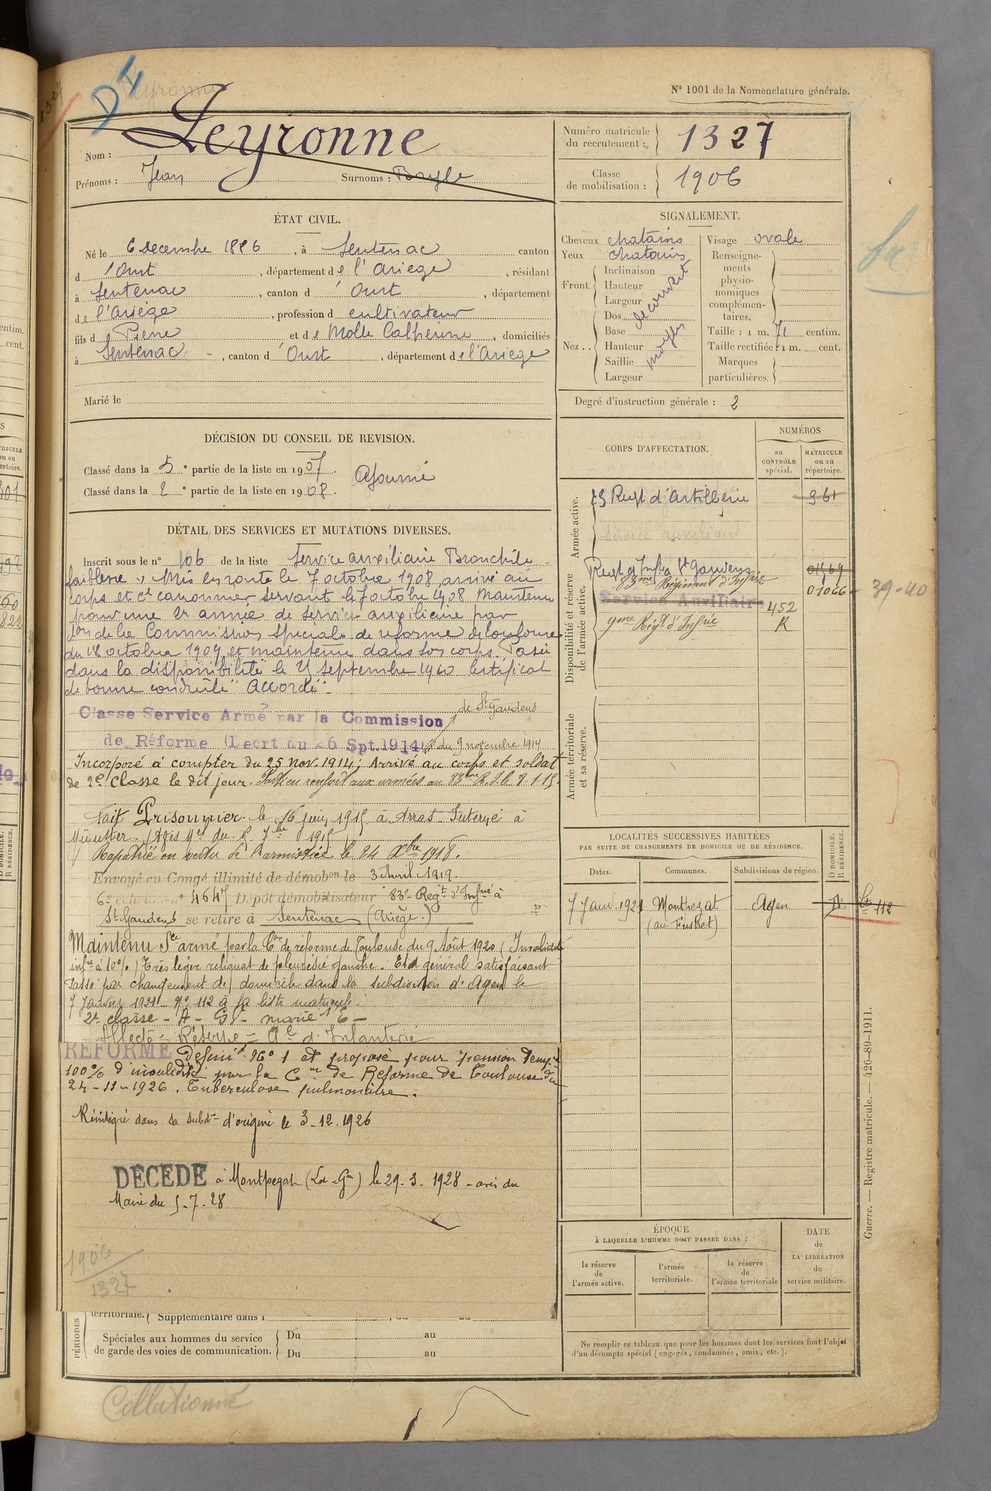 D4
N° 1001 de la Nomenclature générale.
Nom : Leyronne
Prénoms : Jean Surnoms : Bayle
Numéro matricule du recrutement : 1327
Classe de mobilisation : 1906
ÉTAT CIVIL.
Né le 6 Décembre 1886, à Sentenac canton
d'Oust, département de l'Ariège, résidant
à Sentenac, canton d'Oust, département
de l'Ariège, profession de cultivateur
fils de Pierre et de Molle Catherine, domiciliés
à Sentenac, canton d'Oust, département de l'Ariège
Marié le
SIGNALEMENT.
Cheveux chatains
Yeux chatains
Front. Inclinaison
Hauteur
Largeur
Dos
Nez .. Base
Hauteur
Saillie
Largeur
moyen
Visage ovale
Renseignements physionomiques complémentaires.
Taille : 1 m. 71 centim.
Taille rectifiée : 1 m. cent.
Marques particulières.
Degré d'instruction générale : 2
DÉCISION DU CONSEIL DE REVISION.
Classé dans la 5e partie de la liste en 1907
Classé dans la 2e partie de la liste en 1908.
Ajourné
DÉTAIL DES SERVICES ET MUTATIONS DIVERSES.
Inscrit sous le n° 106 de la liste Service auxiliaire Bronchite
faiblesse. Mis en route le 7 octobre 1908, arrivé au
corps et 2e canonnier servant le 7 octobre 1908. Maintenu
pour une 2e année de service auxiliaire par
don de la Commission spéciale de réforme de
du 18 octobre 1909, et maintenu dans son corps. Passé
dans la disponibilité le septembre 1910 Certificat
de bonne conduite "Accordé"
Classe Service Armé par la Commission de St Gaudens
de Réforme (Decrt du 26 Spt. 1914) du 9 novembre 1914
Incorporé à compter du 25 nov. 1914; Arrivé au corps et soldat
de 2e classe le dit jour. Parti en renfort aux armées au 83me R.I. le 8.1.15.
Fait Prisonnier le 16 juin 1915 à Arras. Interné à
Münster.
Rapatrié en vertu de l'armistice le 24 Xbre 1918.
Envoyé en Congé illimité de démobon le 3 Avril 1919
Dépôt démobilisateur 83e Regt d'Infrie à
St Gaudens se retire à Sentenac (Ariège)
Maintenu Sce armé par la Con de réforme de Toulouse du 9 Août 1920 (Invalidité
infre à 10%) Très léger reliquat de pleurésie gauche. Etat général satisfaisant
Passé par changement de domicile dans la subdivision d'Agen le
7 Janvier 1921 - N° 112 de la liste matricule.
2e classe - A - marié
Affecté - Réserve - d'Infanterie
REFORME Définive N° 1 et proposé pour pension Tempre
100% d'invalidité par la Con de Réforme de Toulouse du
24-11-1926. Tuberculose pulmonaire.
Réintégré dans sa subdon d'origine le 3-12-1926
DÉCÉDÉ à Montpezat (Lot-Gne) le 29-3-1928 - avis du
Maire du 5-7-28
1906
1327
territoriale. Supplémentaire dans l au
PÉRIODES
Spéciales aux hommes du service de garde des voies de communication.
Du au
Du au
CORPS D'AFFECTATION.
NUMÉROS
au CONTRÔLE spécial.
MATRICULE ou au répertoire.
Armée active.
Disponibilité et réserve de l'armée active.
Armée territoriale et sa réserve.
23 Regt d'Artillerie 961
Service auxiliaire
Regt d'Infie St Gaudens
83me Régiment d'Infrie 01066
39-40
Service Auxiliaire 452
9me Régt d'Infrie R
LOCALITÉS SUCCESSIVES HABITÉES
PAR SUITE DE CHANGEMENTS DE DOMICILE OU DE RÉSIDENCE.
Dates. Communes. Subdivisions de région. D DOMICILE. R RÉSIDENCE.
7 Janv. 1921 Montpezat Agen D. 112
ÉPOQUE
À LAQUELLE L'HOMME DOIT PASSER DANS :
la réserve de l'armée active.
l'armée territoriale.
la réserve de l'armée territoriale
DATE de LA LIBÉRATION du service militaire.
Ne remplir ce tableau que pour les hommes dont les services font l'objet
d'un décompte spécial (engagés, condamnés, omis, etc.).
Guerre. — Registre matricule. — 426-89-1911.
Collationné